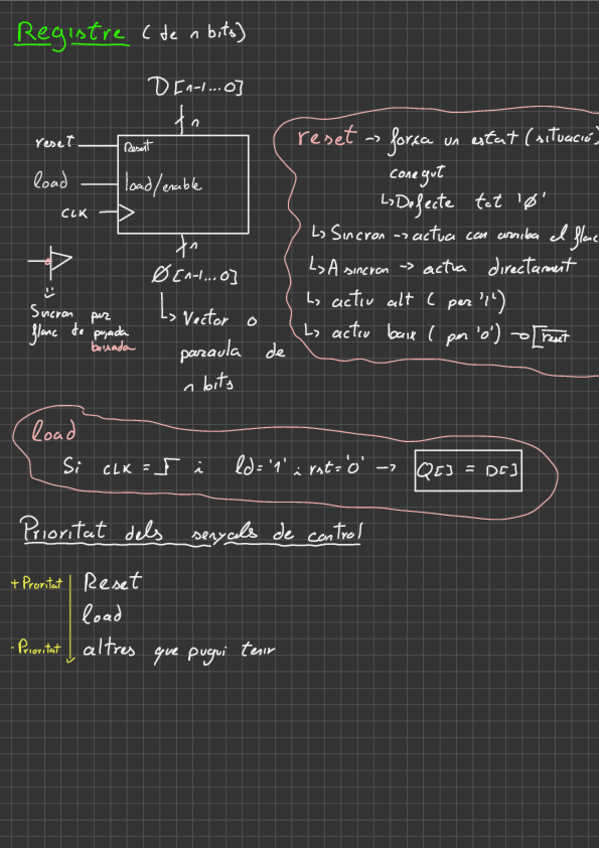 Registre (de n bits)
D[n-1...0]
n
reset
Reset
load
load/enable
CLK
n
Q[n-1...0]
↳ Vector o
paraula de
n bits
Sincron per
flanc de pujada
baixada
reset → força un estat (situació)
conegut
↳ Defecte tot '0'
↳ Sincron → actua can arriba el flanc
↳ Asincron → actua directament
↳ actiu alt (per '1')
↳ actiu baix (per '0') →o[reset
load
Si CLK = i ld='1' i rst='0' → Q[] = D[]
Prioritat dels senyals de control
+ Prioritat
Reset
load
- Prioritat
altres que pugui tenir